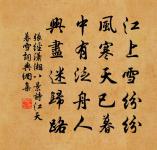 江上雪紛紛
風寒天已暮
中有泛舟人
興盡迷歸路
張經瀟湘八景詩江天
暮雪詞典網集